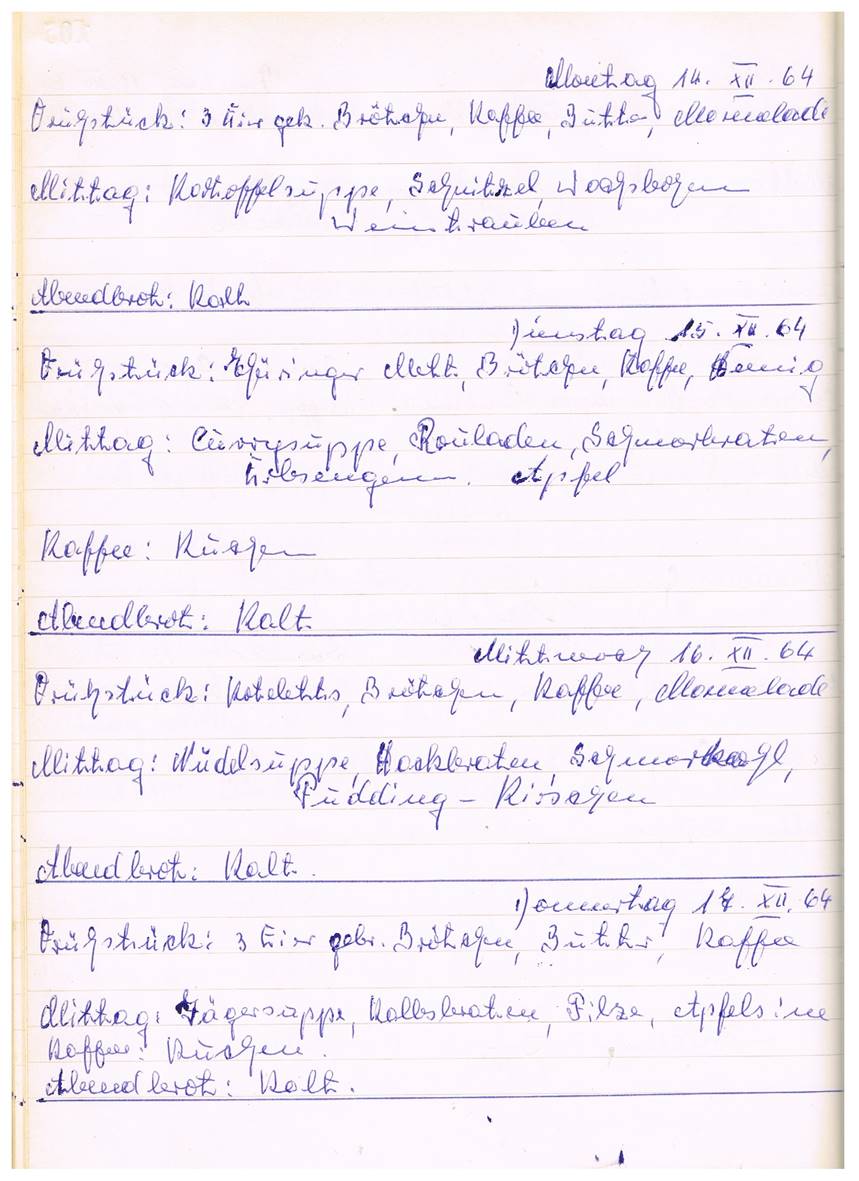 Montag 14. XII. 64
Frühstück: 3 Eier gek. Brötchen, Kaffee, Butter, Marmelade
Mittag: Kartoffelsuppe, Schnitzel, Wachsbohnen
Weintrauben
Abendbrot: Kalt
Dienstag 15. XII. 64
Frühstück: Thüringer Mett, Brötchen, Kaffee, Honig
Mittag: Currysuppe, Rouladen, Schmorbraten,
Erbsengem. Apfel
Kaffee: Kuchen
Abendbrot: Kalt.
Mittwoch 16. XII. 64
Frühstück: Koteletts, Brötchen, Kaffee, Marmelade
Mittag: Nudelsuppe, Hackbraten, Schmorkohl,
Pudding - Kirschen
Abendbrot: Kalt.
Donnerstag 17. XII. 64
Frühstück: 3 Eier gebr. Brötchen, Butter, Kaffee
Mittag: Jägersuppe, Kalbsbraten, Pilze, Apfelsine
Kaffee: Kuchen.
Abendbrot: Kalt.